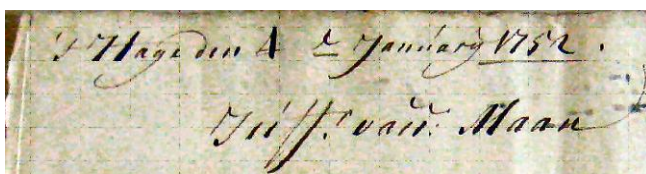 'S Hage den 4 e January 1752.
Juffr. van Maan